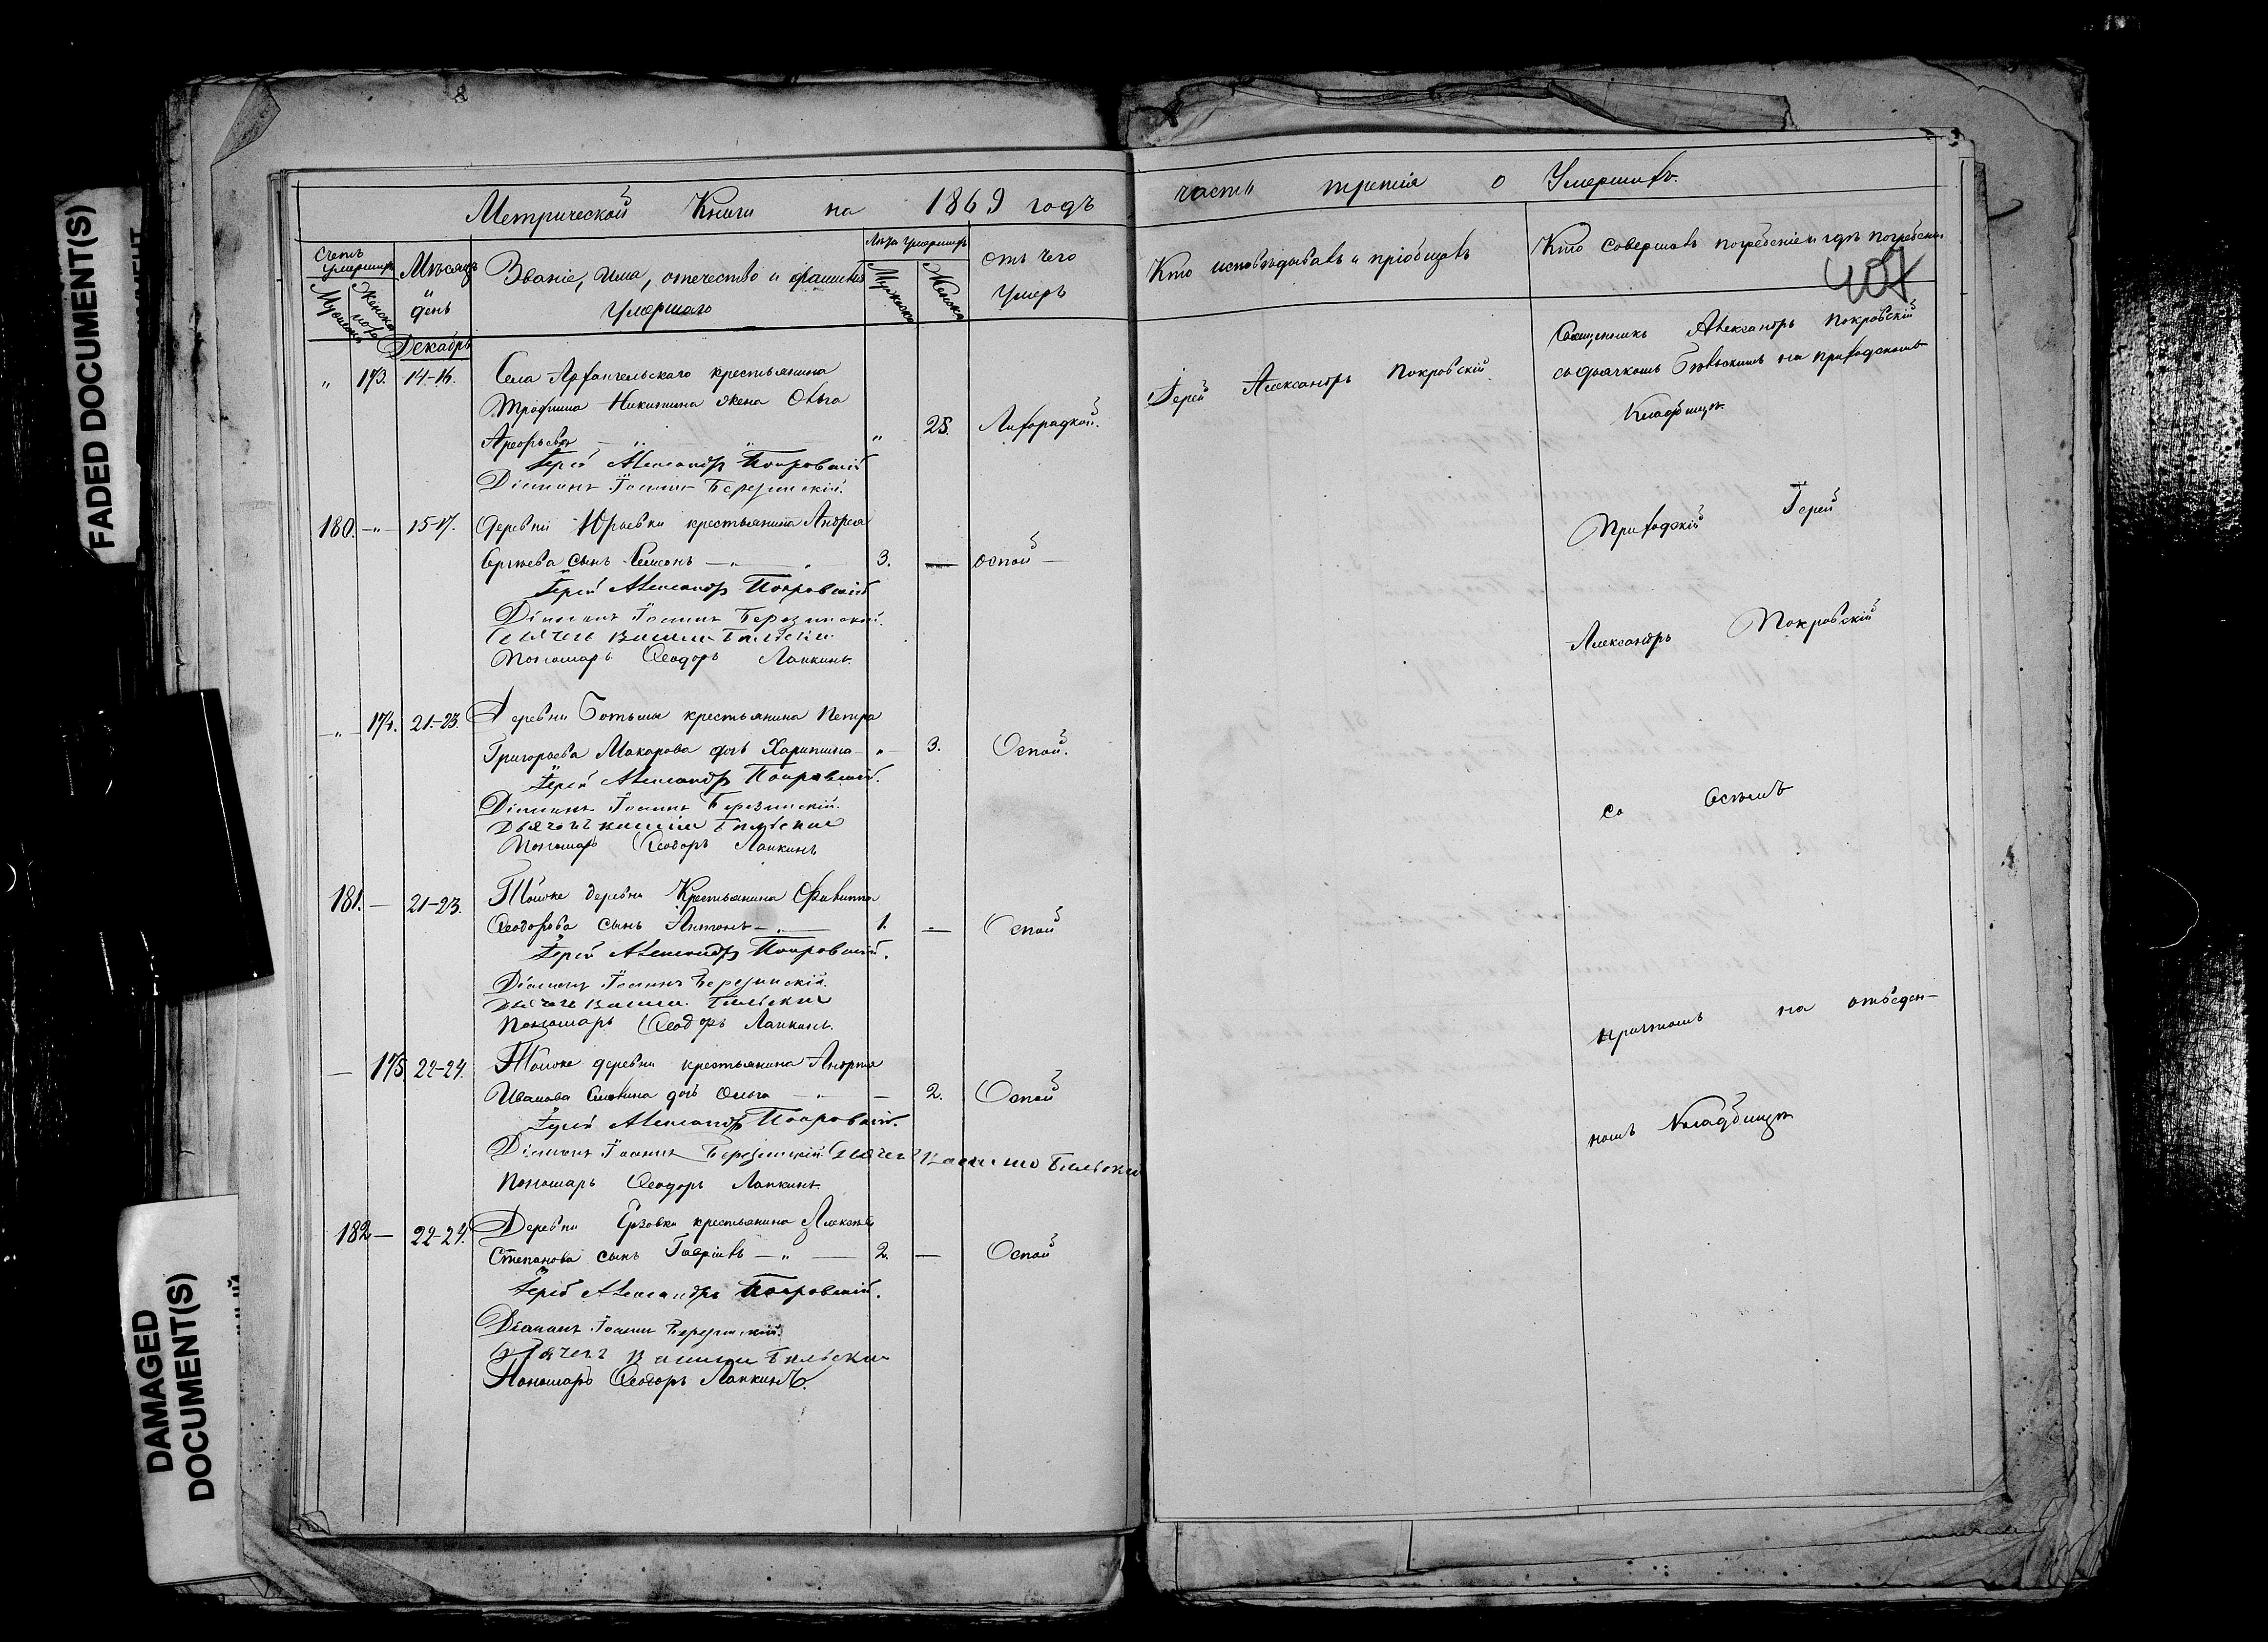 FADED DOCUMENT(S)
DAMAGED
DOCUMENT(S)
Метрической Книги на 1869 годъ
часть третія о Умершихъ.
Счетъ умершихъ
Мужска
Женска пола
Мѣсяцъ и день
Званіе, Имя, отечество и фамилія Умершаго
Лѣта умершихъ
Мужска
Женска
отъ чего Умеръ
Кто исповѣдывалъ и пріобщалъ
Кто совершалъ погребеніе и гдѣ погребены
407
Декабрь
„ 173. 14-16. Села Архангельскаго крестьянина
Трофима Никитина жена Ольга
„ 28. Лихорадкой.
Іерей Александръ Покровскій
Діаконъ Іоаннъ Березинскій.
Іерей Александръ Покровскій
Священникъ Александръ Покровскій
съ дьячкомъ на приходскомъ
Кладбищѣ.
180. — 15-17. Деревни Юрьевки крестьянина Андрея
Сергѣева сынъ Симонъ 3. — оспой
Іерей Александръ Покровскій
Діаконъ Іоаннъ Березинскій.
Дьячекъ Бѣльскій
Пономарь Ѳеодоръ Лапкинъ.
— 174. 21-23. Деревни Ботьмы крестьянина Петра
Григорьева Макарова дочь Харитина — 3. Оспой.
Іерей Александръ Покровскій.
Діаконъ Іоаннъ Березинскій.
Дьячекъ Бѣльскій
Пономарь Ѳеодоръ Лапкинъ
181. — 21-23. Тойже деревни Крестьянина Филиппа
Ѳеодорова сынъ Антонъ 1. — Оспой
Іерей Александръ Покровскій.
Діаконъ Іоаннъ Березинскій.
Дьячекъ Бѣльскій
Пономарь Ѳеодоръ Лапкинъ.
— 175 22-24. Тойже деревни крестьянина Андрея
Иванова дочь Ольга — 2. Оспой
Іерей Александръ Покровскій.
Діаконъ Іоаннъ Березинскій Дьячекъ Бѣльскій
Пономарь Ѳеодоръ Лапкинъ.
182 — 22-24. Деревни Ерзовки крестьянина Алексѣя
Степанова сынъ Гавріилъ 2. — Оспой
Іерей Александръ Покровскій.
Діаконъ Іоаннъ Березинскій.
Дьячекъ Бѣльскій
Пономарь Ѳеодоръ Лапкинъ.
Приходскій Іерей
Александръ Покровскій
со всѣмъ
причтомъ на отведен-
номъ Кладбищѣ